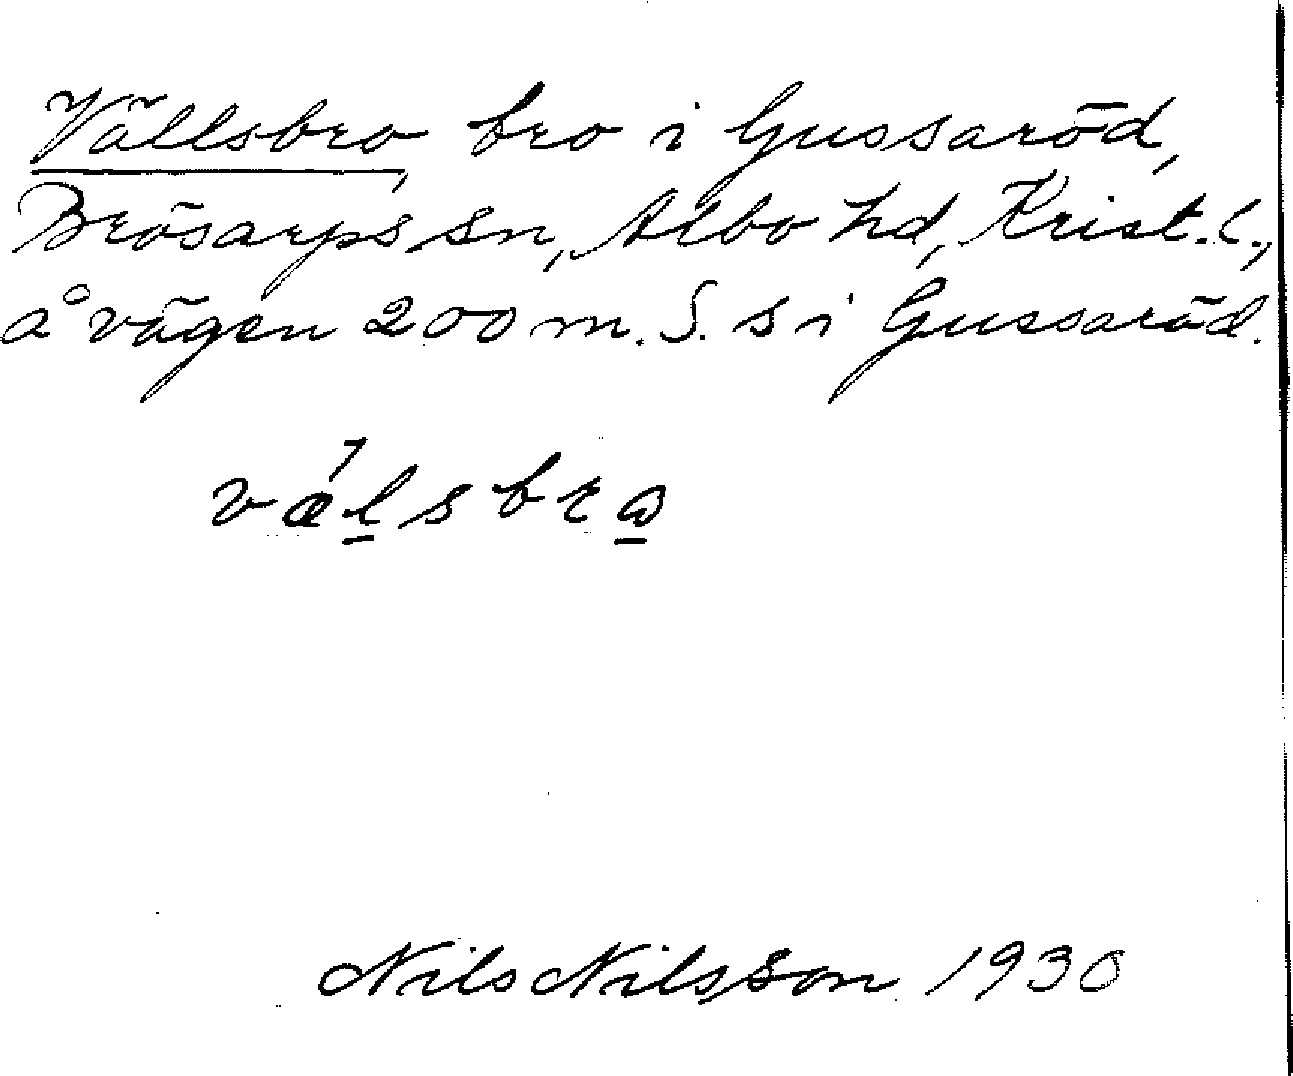 Vällsbro, bro i Gussaröd,
Brösarps sn, Albo hd, Krist. l.,
å vägen 200 m. S. s i Gussaröd.
væ´l̠sbrω̠
Nils Nilsson 1930